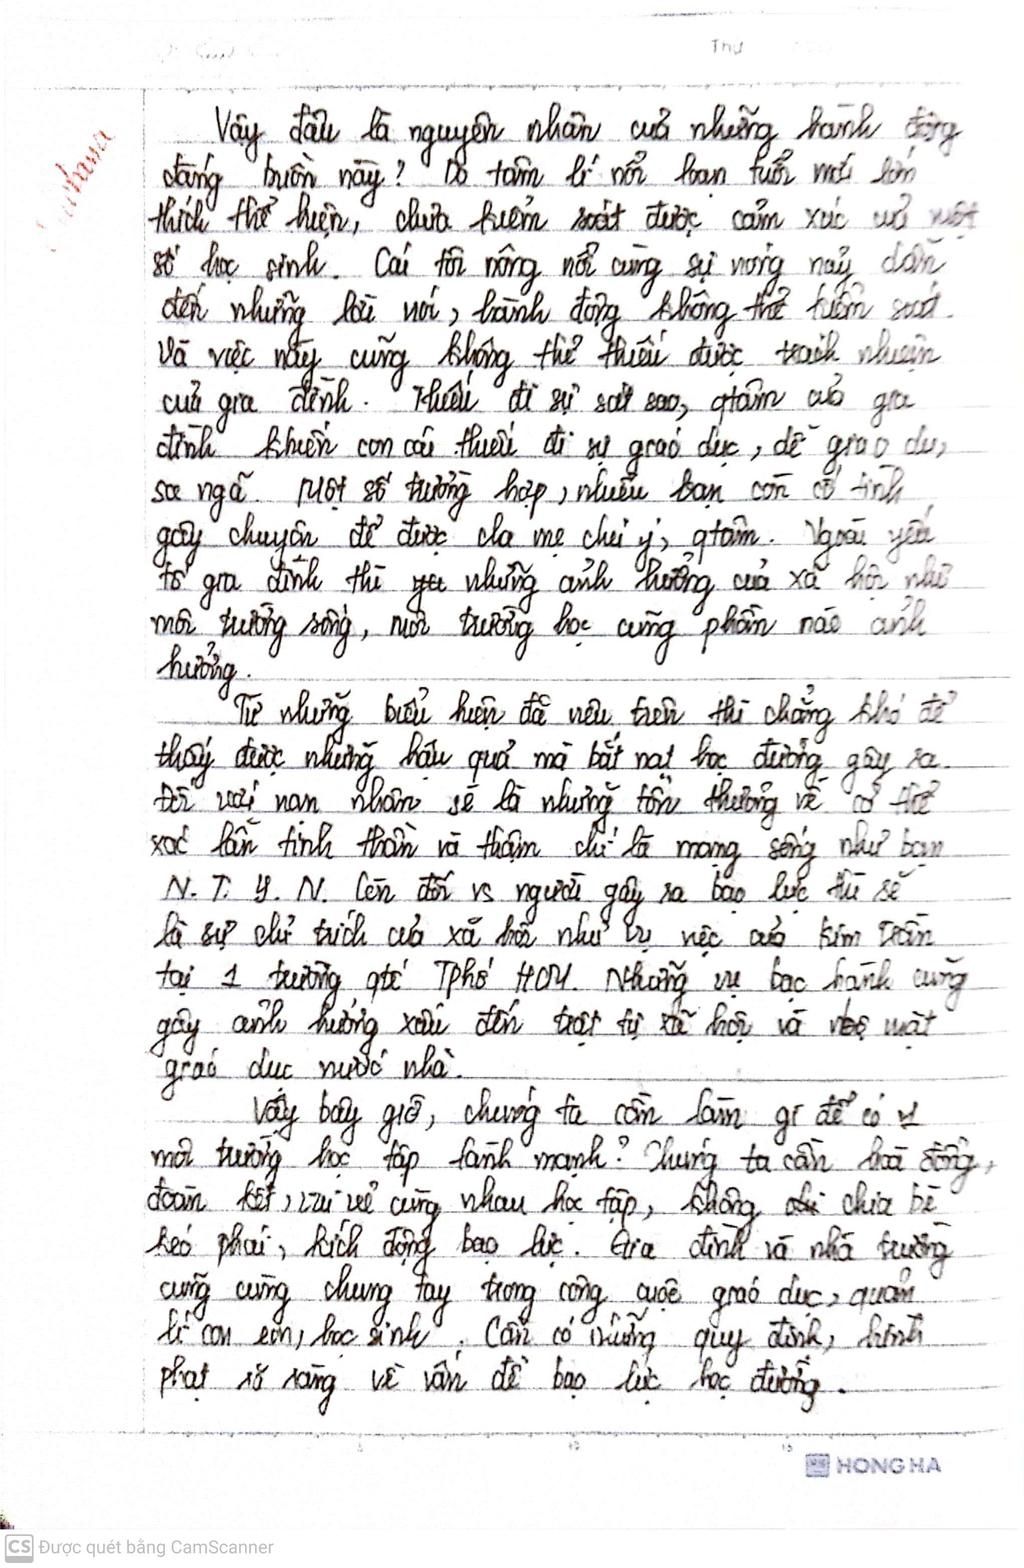 Thứ
Vậy đâu là nguyên nhân của những hành động
đáng buồn này? Do tâm lí nổi loạn tuổi mới lớn
thích thể hiện, chưa kiểm soát được cảm xúc của một
số học sinh. Cái tôi nông nổi cùng sự nóng nảy dẫn
đến những lời nói, hành động không thể kiểm soát.
Và việc này cũng không thể thiếu được trách nhiệm
của gia đình. Thiếu đi sự sát sao, qtâm của gia
đình khiến con cái thiếu đi sự giáo dục, dễ giao du,
sa ngã. Một số trường hợp, nhiều bạn còn cố tình
gây chuyện để được cha mẹ chú ý, qtâm. Ngoài yếu
tố gia đình thì những ảnh hưởng của xã hội như
môi trường sống, môi trường học cũng phần nào ảnh
hưởng.
Từ những biểu hiện đã nêu trên thì chẳng khó để
thấy được những hậu quả mà bắt nạt học đường gây ra.
Đối với nạn nhân sẽ là những tổn thương về cơ thể
xác lẫn tinh thần và thậm chí là mạng sống như bạn
N. T. Y. N. Còn đối vs người gây ra bạo lực thì sẽ
là sự chỉ trích của xã hội như vụ việc của Kim Trần
tại 1 trường qtế Tphố HCM. Những vụ bạo hành cũng
gây ảnh hưởng xấu đến trật tự xã hội và bộ mặt
giáo dục nước nhà.
Vậy bây giờ, chúng ta cần làm gì để có 1
môi trường học tập lành mạnh? Chúng ta cần hoà đồng,
đoàn kết, vui vẻ cùng nhau học tập, không chia bè
kéo phái, kích động bạo lực. Gia đình và nhà trường
cũng cùng chung tay trong công cuộc giáo dục, quản
lí con em, học sinh. Cần có những quy định, hình
phạt rõ ràng về vấn đề bạo lực học đường.
5 10 15
HONG HA
CS Được quét bằng CamScanner